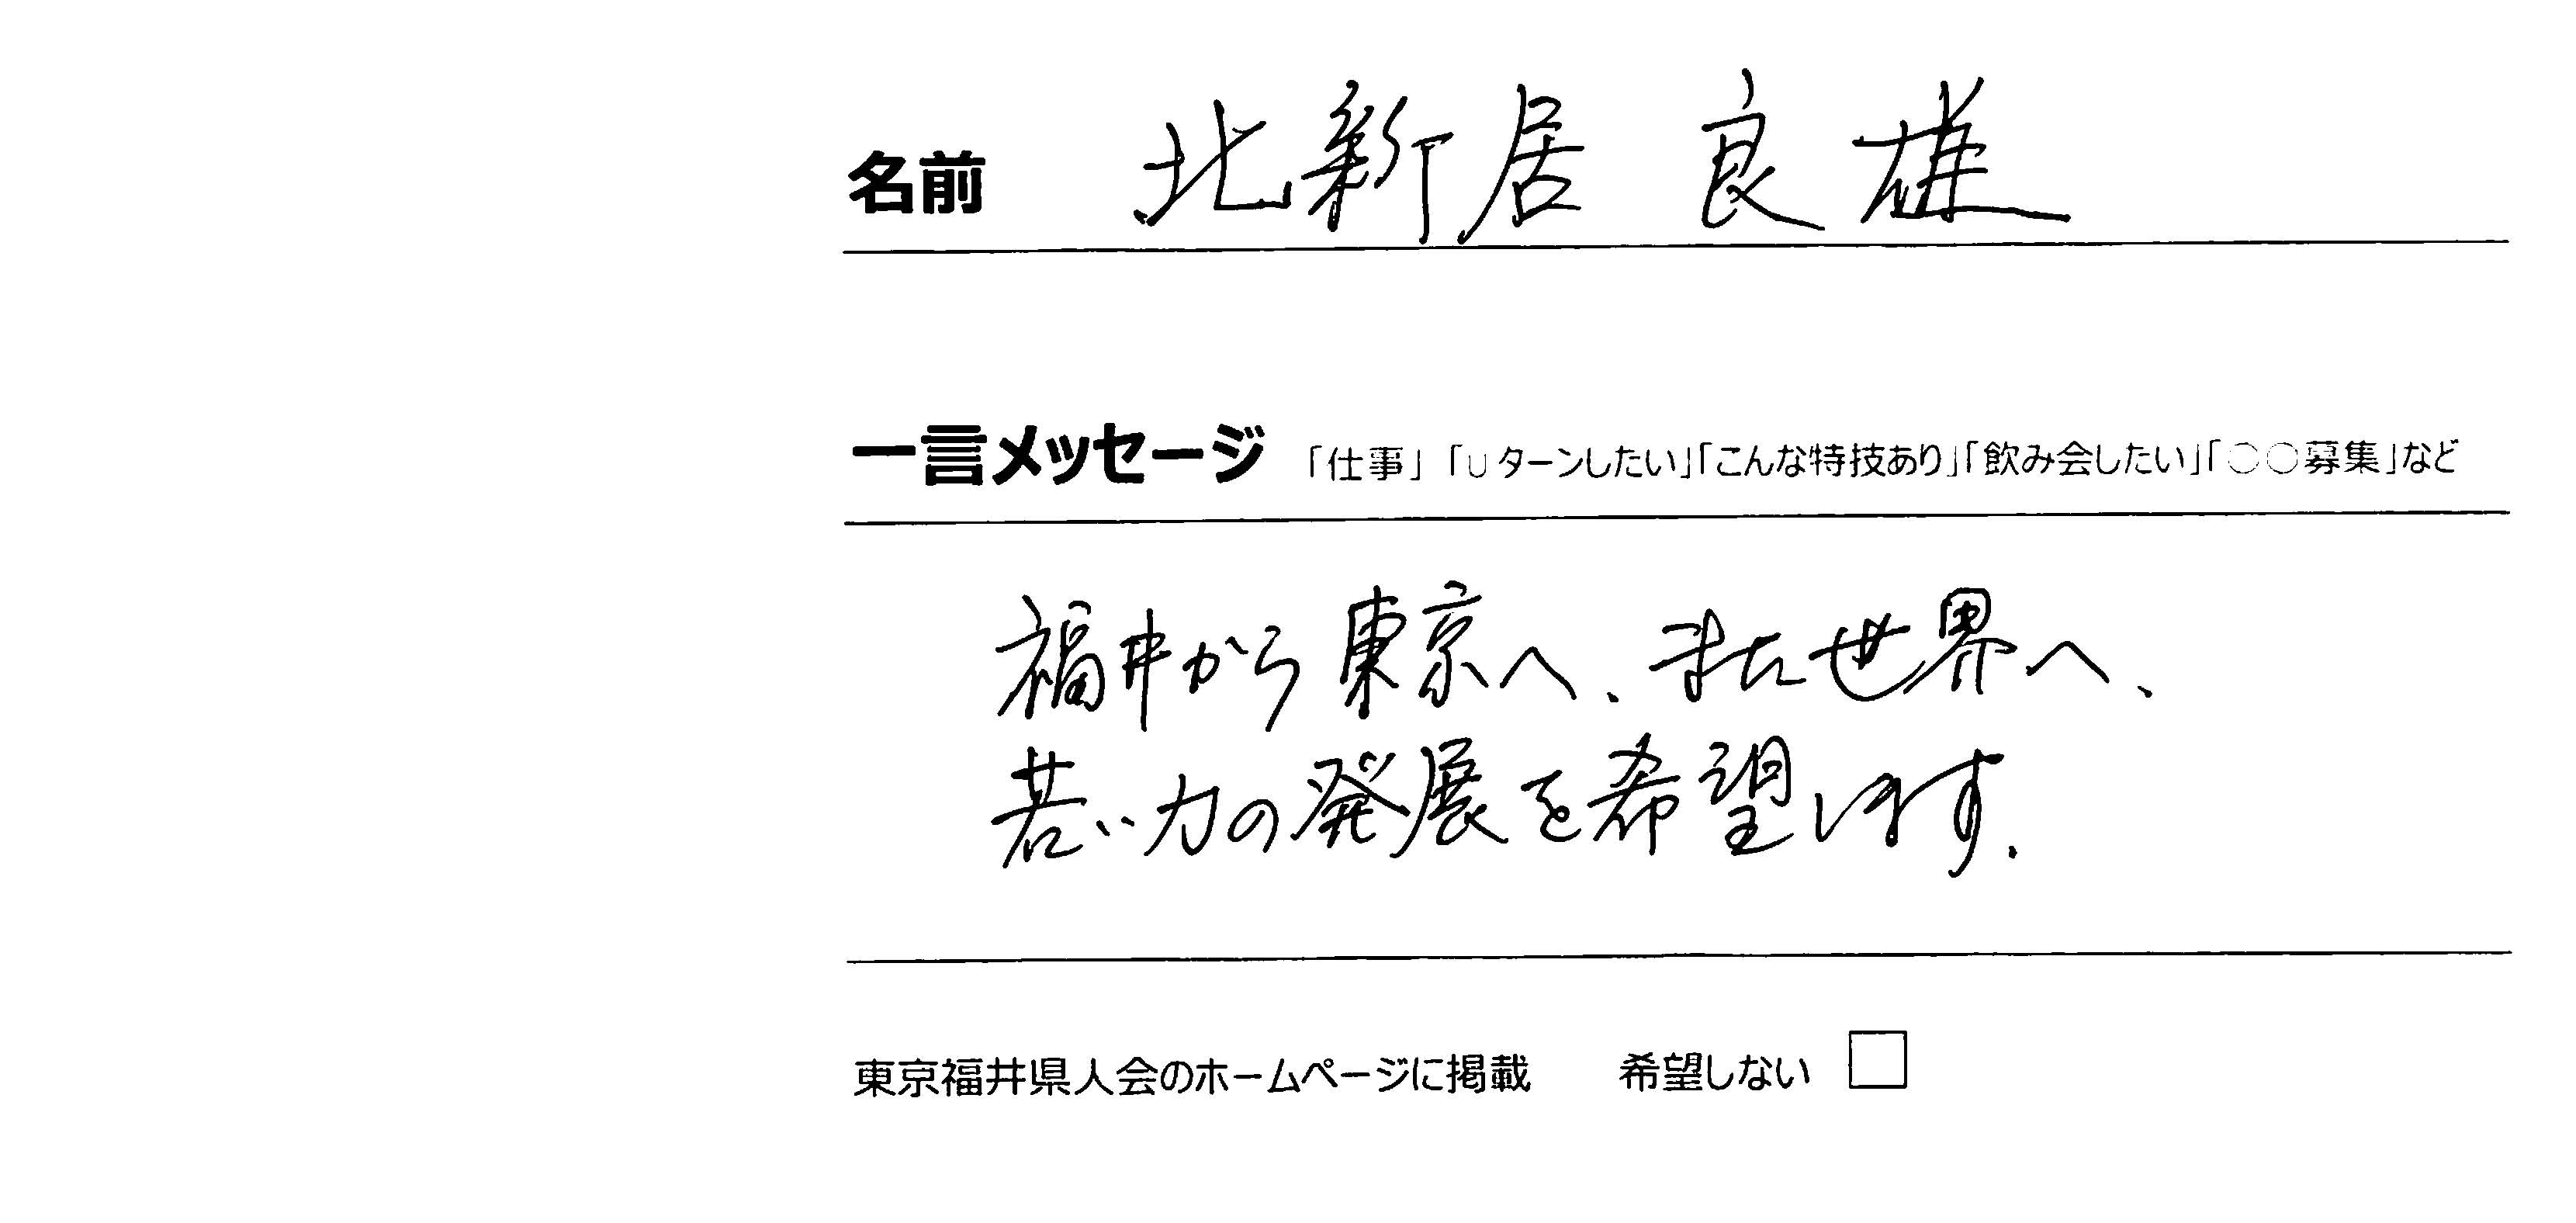 名前 北新居 良雄
一言メッセージ 「仕事」「Uターンしたい」「こんな特技あり」「飲み会したい」「○○募集」など
福井から東京へ、また世界へ、
若い力の発展を希望します.
東京福井県人会のホームページに掲載 希望しない □